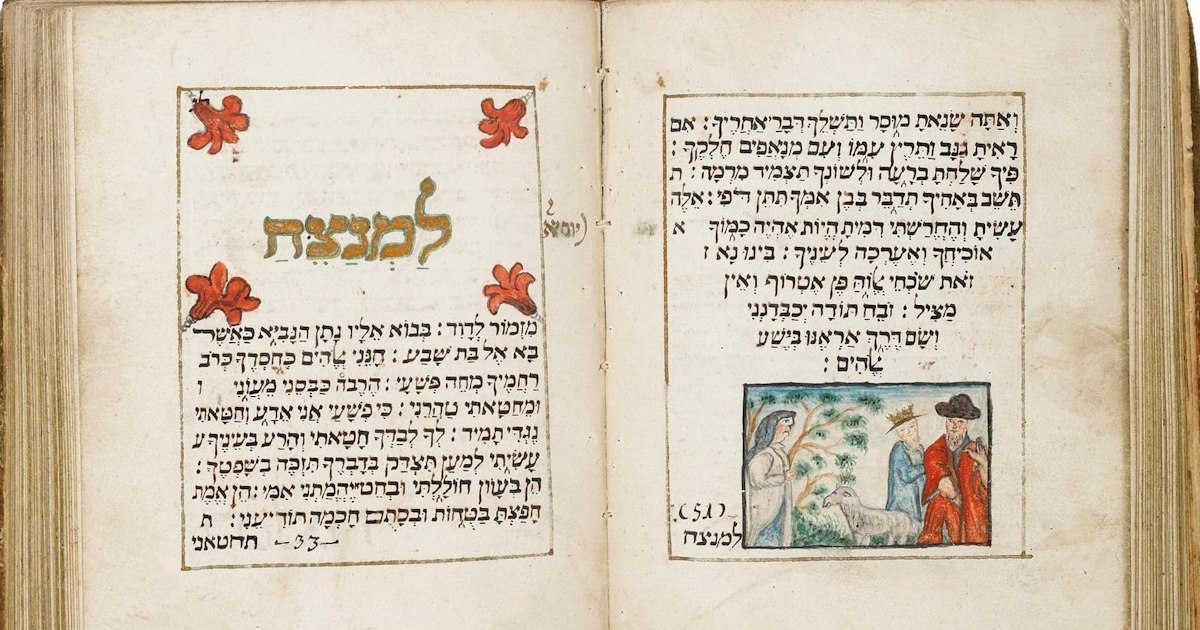 וְאַתָּה שָׂנֵאתָ מוּסָר וַתַּשְׁלֵךְ דְּבָרַי אַחֲרֶיךָ : אִם
רָאִיתָ גַנָּב וַתִּרֶץ עִמּוֹ וְעִם מְנָאֲפִים חֶלְקֶךָ :
פִּיךָ שָׁלַחְתָּ בְרָעָה וּלְשׁוֹנְךָ תַּצְמִיד מִרְמָה : ת
תֵּשֵׁב בְּאָחִיךָ תְדַבֵּר בְּבֶן אִמְּךָ תִּתֵּן דֹּפִי : אֵלֶּה
עָשִׂיתָ וְהֶחֱרַשְׁתִּי דִּמִּיתָ הֱיוֹת אֶהְיֶה כָמוֹךָ א
אוֹכִיחֲךָ וְאֶעֶרְכָה לְעֵינֶיךָ : בִּינוּ נָא ז
זֹאת שֹׁכְחֵי אֱלוֹהַּ פֶּן אֶטְרוֹף וְאֵין
מַצִּיל : זֹבֵחַ תּוֹדָה יְכַבְּדָנְנִי
וְשָׂם דֶּרֶךְ אַרְאֶנּוּ בְּיֵשַׁע
אֱלֹהִים :
(51)
למנצח
לַמְנַצֵּחַ
מִזְמוֹר לְדָוִד : בְּבוֹא אֵלָיו נָתָן הַנָּבִיא כַּאֲשֶׁר
בָּא אֶל בַּת שָׁבַע : חָנֵּנִי אֱלֹהִים כְּחַסְדֶּךָ כְּרוֹב
רַחֲמֶיךָ מְחֵה פְשָׁעָי : הַרְבֵּה כַּבְּסֵנִי מֵעֲוֹנִי ו
וּמֵחַטָּאתִי טַהֲרֵנִי : כִּי פְשָׁעַי אֲנִי אֵדָע וְחַטָּאתִי
נֶגְדִּי תָמִיד : לְךָ לְבַדְּךָ חָטָאתִי וְהָרַע בְּעֵינֶיךָ ע
עָשִׂיתִי לְמַעַן תִּצְדַּק בְּדָבְרֶךָ תִּזְכֶּה בְשָׁפְטֶךָ :
הֵן בְּעָווֹן חוֹלָלְתִּי וּבְחֵטְא יֶחֱמַתְנִי אִמִּי : הֵן אֱמֶת
חָפַצְתָּ בַטֻּחוֹת וּבְסָתֻם חָכְמָה תוֹדִיעֵנִי : ת
תחטאני —33—